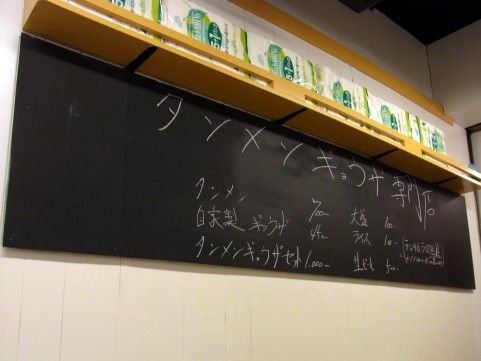 タンメン ギョウザ 専門店
タンメン 700- 大盛 100-
自家製 ギョウザ 440- ライス 100-
タンメンギョウザセット 1,000- 生ビール 500-